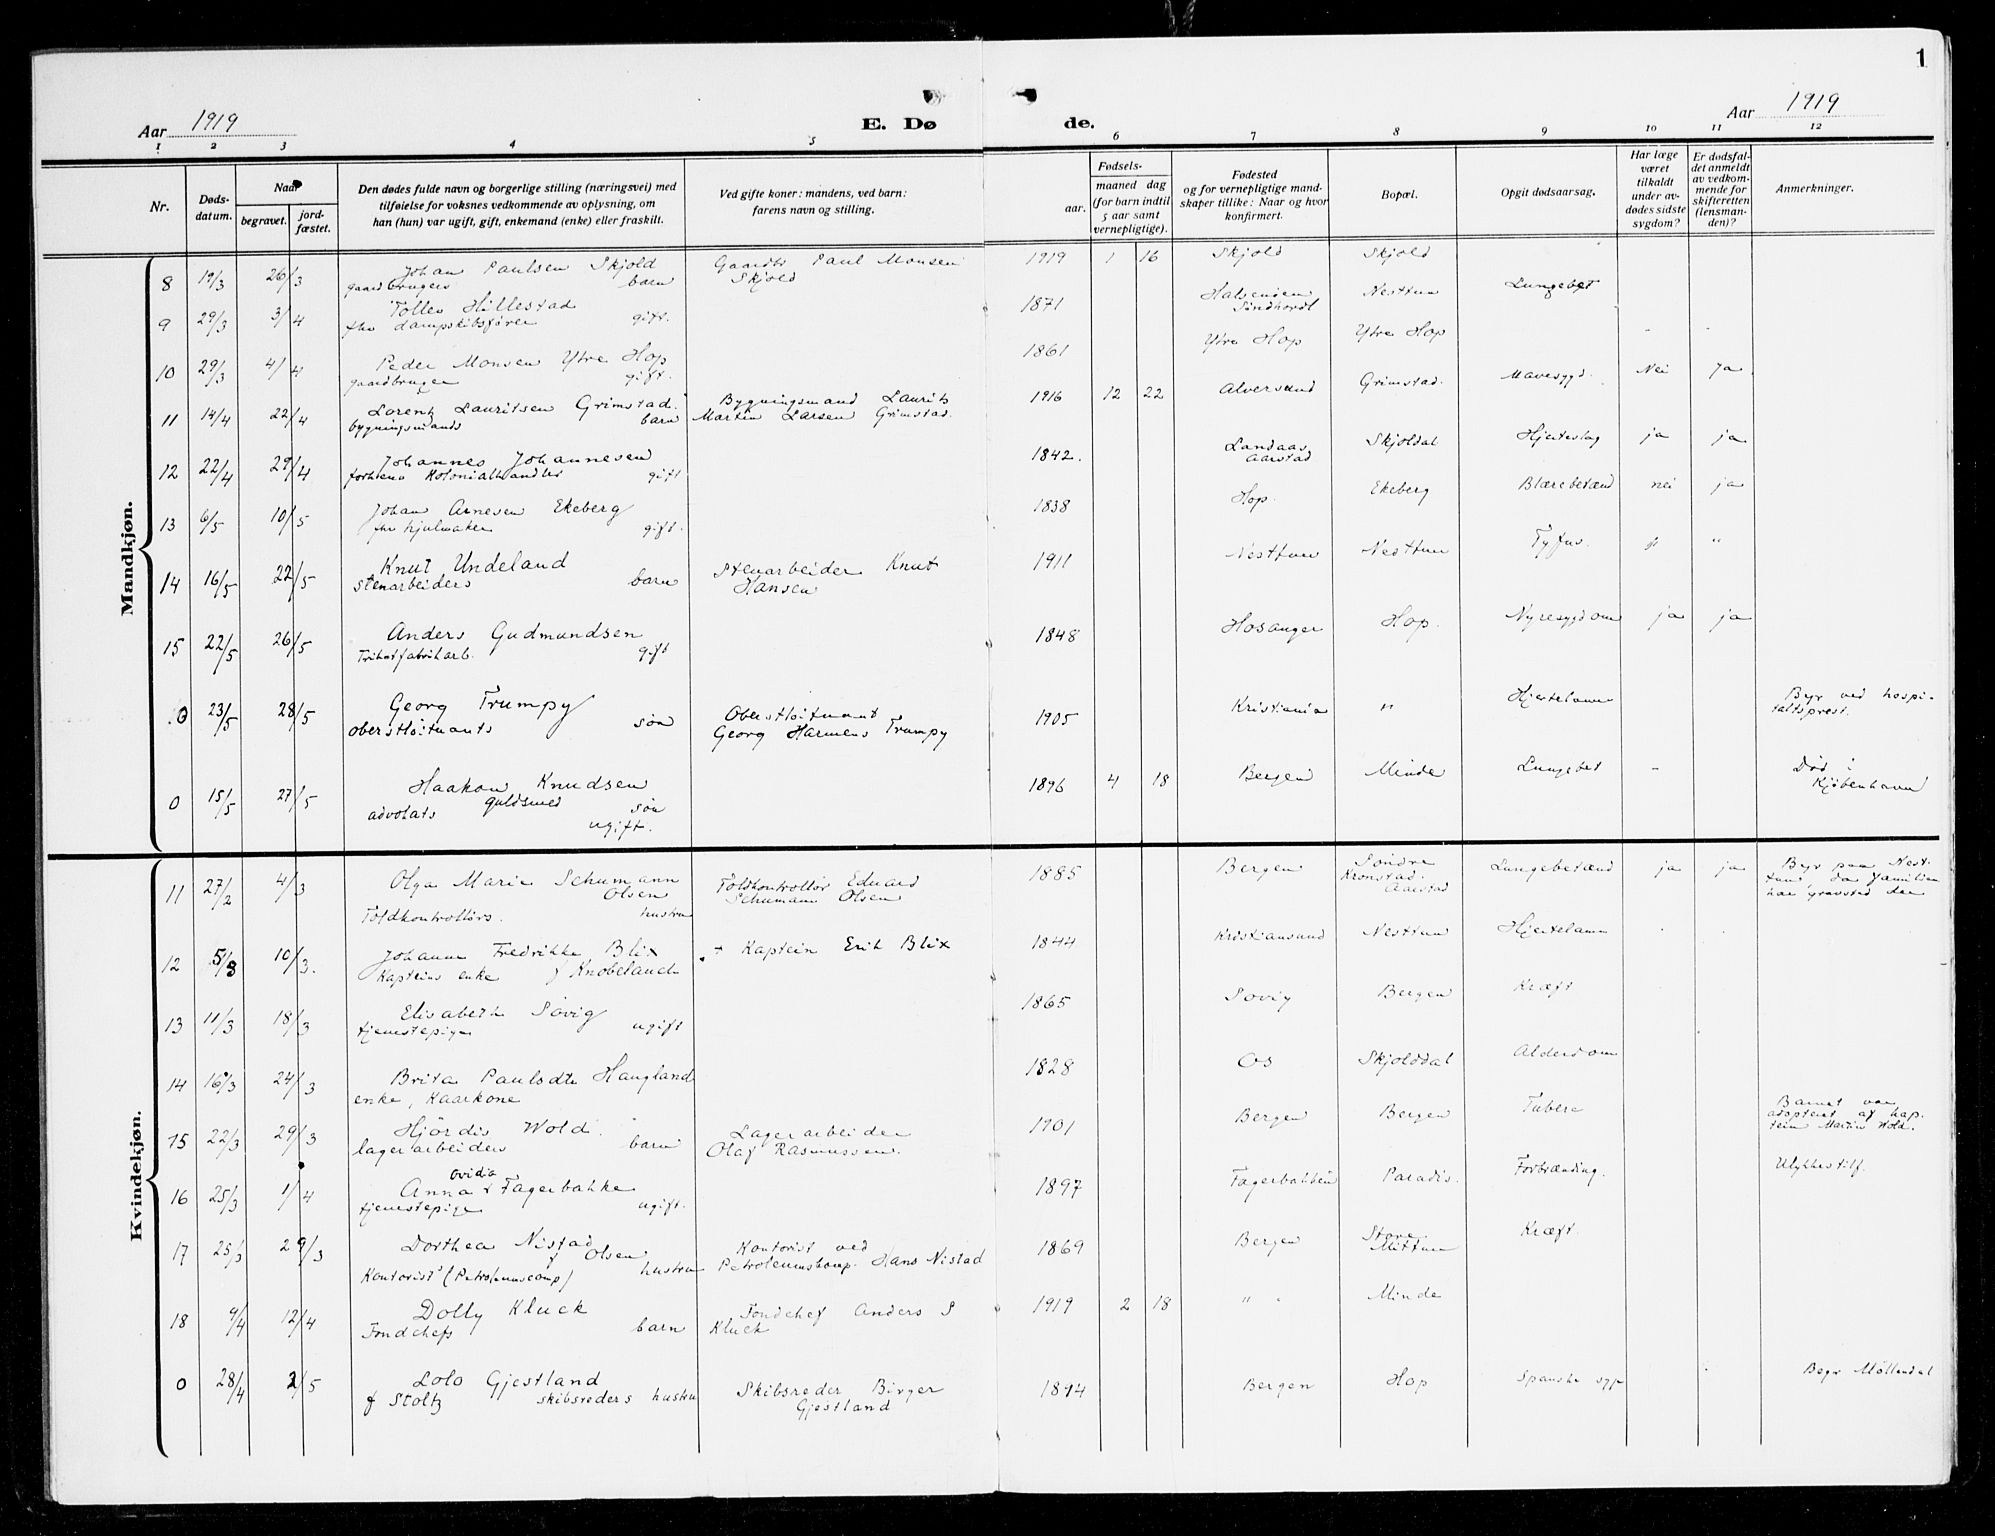 1
Aar 1919
E. Dø
de.
Aar 1919
1 2 3 4 5 6 7 8 9 10 11 12
Nr.
Døds-
datum.
Naar
begravet.
jord-
fæstet.
Den dødes fulde navn og borgerlige stilling (næringsvei) med
tilføielse for voksnes vedkommende av oplysning, om
han (hun) var ugift, gift, enkemand (enke) eller fraskilt.
Ved gifte koner: mandens, ved barn:
farens navn og stilling.
Fødsels-
aar.
maaned dag
(for barn indtil
5 aar samt
vernepligtige).
Fødested
og for vernepligtige mand-
skaper tillike: Naar og hvor
konfirmert.
Bopæl.
Opgit dødsaarsag.
Har læge
været
tilkaldt
under av-
dødes sidste
sygdom?
Er dødsfal-
det anmeldt
av vedkom-
mende for
skifteretten
(lensman-
den)?
Anmerkninger.
Mandkjøn.
8 19/3 26/3 Johan Paulsen Skjold Gaardbr Paul Monsen 1919 1 16 Skjold Skjold
gaardbrugers barn Skjold
9 29/3 3/4 Tolles Hillestad 1871 Halsenøen Nesttun Lungebet
fhv dampskibsfører gift. Søndhordl
10 29/3 4/4 Peder Monsen Ytre Hop 1861 Ytre Hop Ytre Hop
gaardbruger gift.
11 14/4 22/4 Lorentz Lauritsen Grimstad. Bygningsmand Laurits 1916 12 22 Alversund Grimstad. Mavesygd. Nei Ja
bygningsmands barn Martin Larsen Grimstad.
12 22/4 29/4 Johannes Johannesen 1842. Landaas Skjoldal Hjerteslag ja ja
forhenv Kolonialhandler gift Aarstad
13 6/5 10/5 Johan Arnesen Ekeberg 1838 Hop. Ekeberg Blærebetænd nei ja
fhv hjulmaker gift.
14 16/5 22/5 Knut Undeland Stenarbeider Knut 1911 Nesttun Nesttun Tyfus. "
stenarbeiders barn Hansen
15 22/5 26/5 Anders Gudmundsen 1848 Hosanger Hop. Nyresygdom ja ja
Trikotfabrikarb. gift
0 23/5 28/5 Georg Trumpy Oberstløitnant 1905 Kristiania " Hjertelam Begr ved hospi-
oberstløitnants søn Georg Harmens Trumpy taltsprest.
0 15/5 27/5 Haakon Knudsen 1896 4 18 Bergen Minde Lungebet - Død i
advokats guldsmed søn Kjøbenhavn
ugift.
Kvindekjøn.
11 27/2 4/3 Olga Marie Schumann Toldkontrollør Eduard 1885 Bergen Søndre Lungebetænd ja ja Begr paa Nest-
Olsen Schumann Olsen Kronstad. tun, da familien
Toldkontrollørs. hustru Aarstad har gravsted der
12 5/3 10/3. Johanne Fredrikke Blix + Kaptein Erik Blix 1844 Kristiansund Nesttun Hjertelam
Kapteins enke f Knobelauch
13 11/3 18/3 Elisabeth Søvig 1865 Søvig Bergen Kræft
tjenestepige ugift
14 16/3 24/3 Brita Paulsdtr Haugland 1828 Os Skjolddal Alderdom
enke, Kaarkone
15 22/3 29/3 Hjørdis Wold. Lagerarbeider 1901 Bergen Bergen Tuberc Barnet var
lagerarbeiders barn Olaf Rasmussen. adoptert af kap-
tein Martin Wold.
16 25/3 1/4 Anna Ovidia Fagerbakke 1897 Fagerbakken Paradis. Forbrænding. Ulykkestilf.
tjenestepige ugift.
17 25/3 29/3 Dorthea Nistad Kontorist ved 1869 Bergen Store Kræft.
f Olsen Petroleumskomp. Hans Nistad Mittun
Kontorists (Petroleumscomp) hustru
18 9/4 12/4 Dolly Kluck Fondchef Anders S 1919 2 18 " " Minde
Fondchefs barn Kluck
0 28/4 2/5 Lolo Gjestland Skibsreder Birger 1894 Bergen Hop Spanske syge Begr Møllendal
f Stoltz skibsreders hustru Gjestland